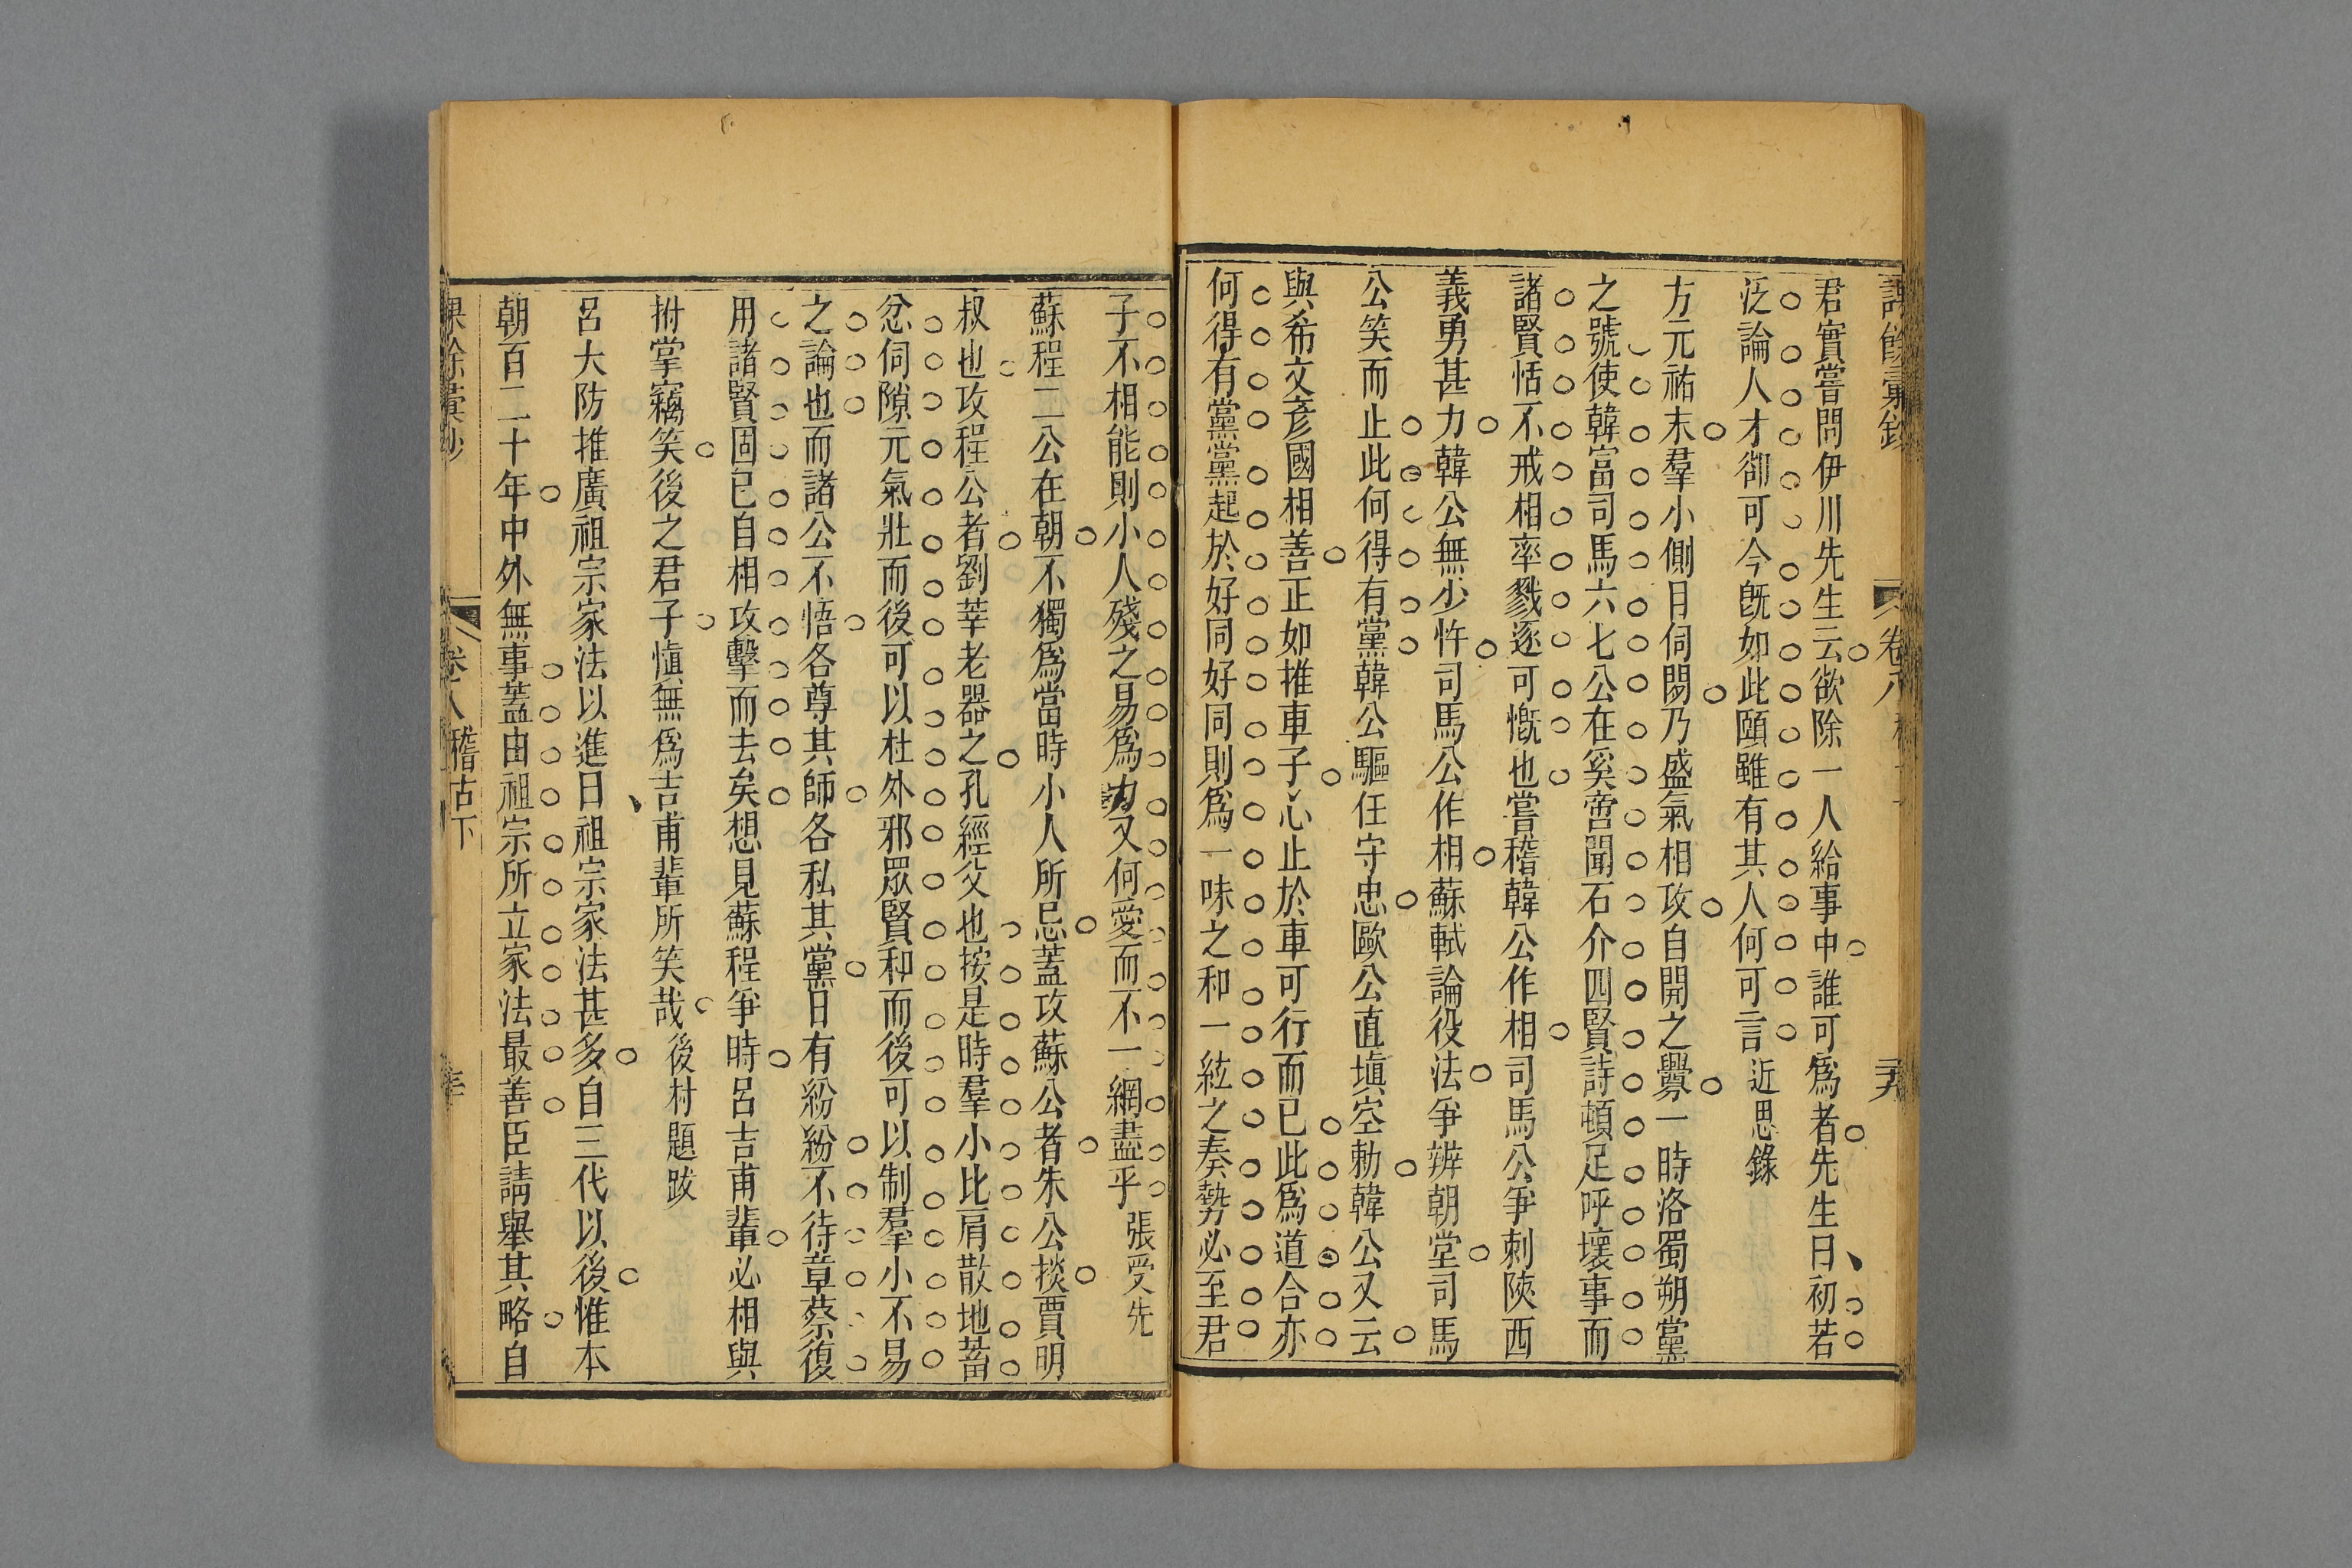 課餘彙鈔 卷八
君實嘗問伊川先生云欲除一人給事中誰可爲者先生曰初若
泛論人才卻可今旣如此頤雖有其人何可言 近思錄
方元祐末羣小側目伺閒乃盛氣相攻自開之釁一時洛蜀朔黨
之號使韓富司馬六七公在奚啻聞石介四賢詩頓足呼壞事而
諸賢恬不戒相率戮逐可慨也嘗稽韓公作相司馬公爭刺陝西
義勇甚力韓公無少忤司馬公作相蘇軾論役法爭辨朝堂司馬
公笑而止此何得有黨韓公驅任守忠歐公直塡空勅韓公又云
與希文彥國相善正如推車子心止於車可行而已此爲道合亦
何得有黨黨起於好同好同則爲一味之和一絃之奏勢必至君
子不相能則小人殘之易爲力又何愛而不一網盡乎 張受先
蘇程二公在朝不獨爲當時小人所忌蓋攻蘇公者朱公掞賈明
叔也攻程公者劉莘老器之孔經父也按是時羣小比肩散地蓄
忿伺隙元氣壯而後可以杜外邪眾賢和而後可以制羣小不易
之論也而諸公不悟各尊其師各私其黨日有紛紛不待章蔡復
用諸賢固已自相攻擊而去矣想見蘇程爭時呂吉甫輩必相與
拊掌竊笑後之君子愼無爲吉甫輩所笑哉 後村題跋
呂大防推廣祖宗家法以進曰祖宗家法甚多自三代以後惟本
朝百二十年中外無事蓋由祖宗所立家法最善臣請舉其略自
課餘彙鈔 卷八 稽古下